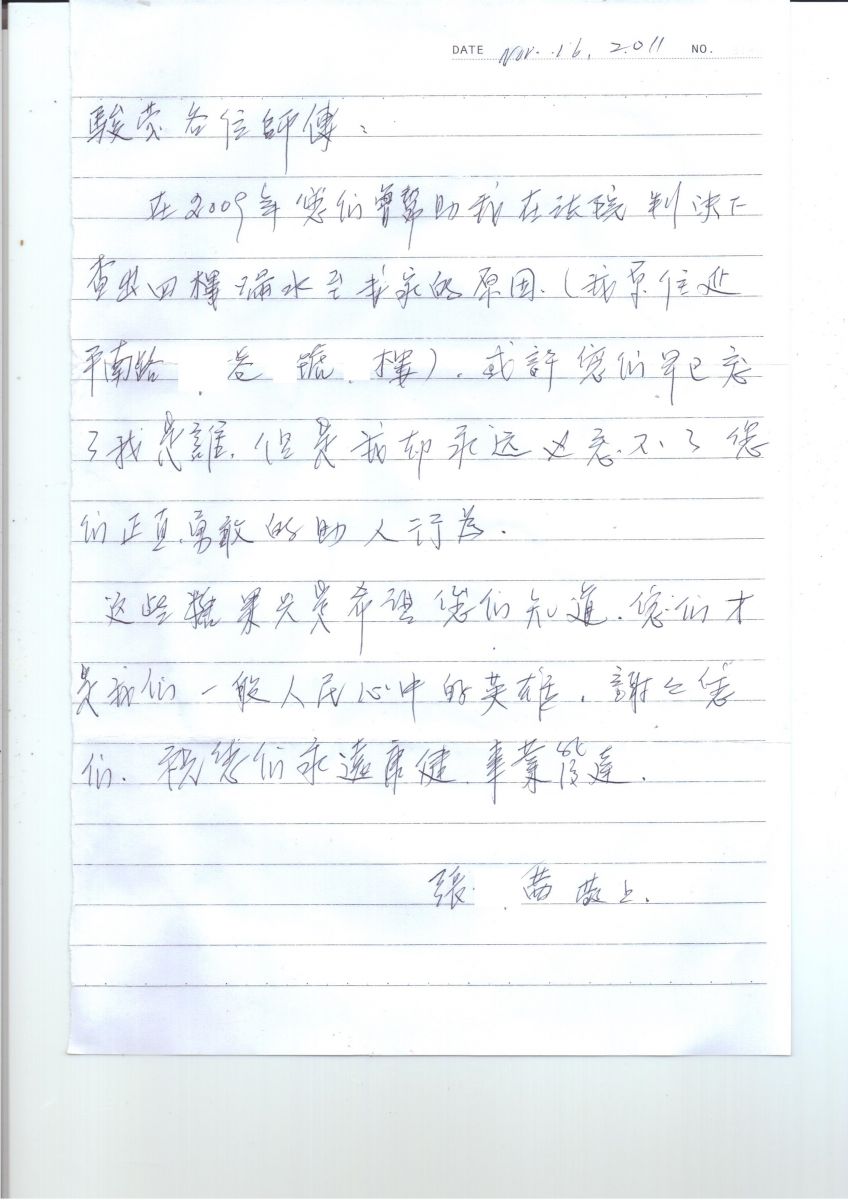 DATE Nov. 16, 2011 NO.
駿熒各位師傅：
在2009年您們曾幫助我在法院判決下
查出四樓漏水至我家的原因.(我原住延
平南路 巷 號 樓). 或許您們早已忘
了我是誰. 但是我却永远也忘不了您
們正直.勇敢的助人行為.
这些糖果只是希望您們知道. 您們才
是我們一般人民心中的英雄. 謝々您
們. 祝您們永遠康健. 事業發達.
張 茜 敬上.